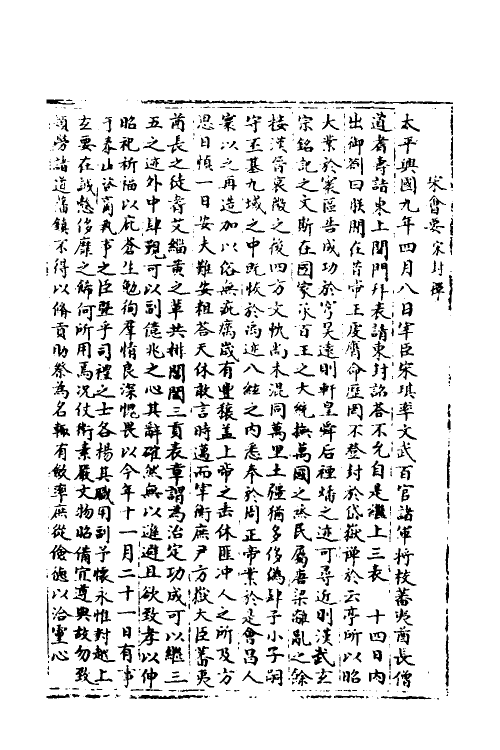 宋會要 宋封禪
太平興國九年四月八日宰臣宋琪率文武百官諸軍將校蕃夷酋長僧
道耆壽詣東上閤門拜表請東封詔荅不允自是繼上三表 十四日內
出御劄曰朕聞在昔帝王虔膺命歷罔不登封於岱嶽禪於云亭所以昭
大業於寰區告成功於穹昊遠則軒皇舜后禋燔之迹可尋近則漢武玄
宗銘記之文斯在國家承百王之大統撫萬國之烝民屬唐梁離亂之餘
接漢晉衰微之後四方文軌尚未混同萬里土疆猶多侈偽肆予小子嗣
守丕基九域之中既牧於禹迹八紘之內悉奉於周正帝業於是會昌人
寰以之再造加以俗無疵癘歲有豐穰蓋上帝之垂休匪冲人之所及方
思日慎一日安夫難安粗荅天休敢言時邁而宰衡庶尹方嶽大臣蕃夷
酋長之徒耆艾緇黃之輩共排閶闔三貢表章謂爲治定功成可以繼三
五之迹外中肆覲可以副億兆之心其辭確然無以進避且欲致孝以仲
昭祀祈福以庇蒼生勉徇羣情良深愧畏以今年十一月二十一日有事
于泰山咨爾執事之臣暨乎司禮之士各揚其職用副予懷永惟對越上
玄要在誠慤侈靡之飾何所用焉况仗衛素嚴文物昭備宜遵典故勿致
煩勞諸道藩鎮不得以脩貢助祭爲名輒有斂率庶從儉德以洽靈心